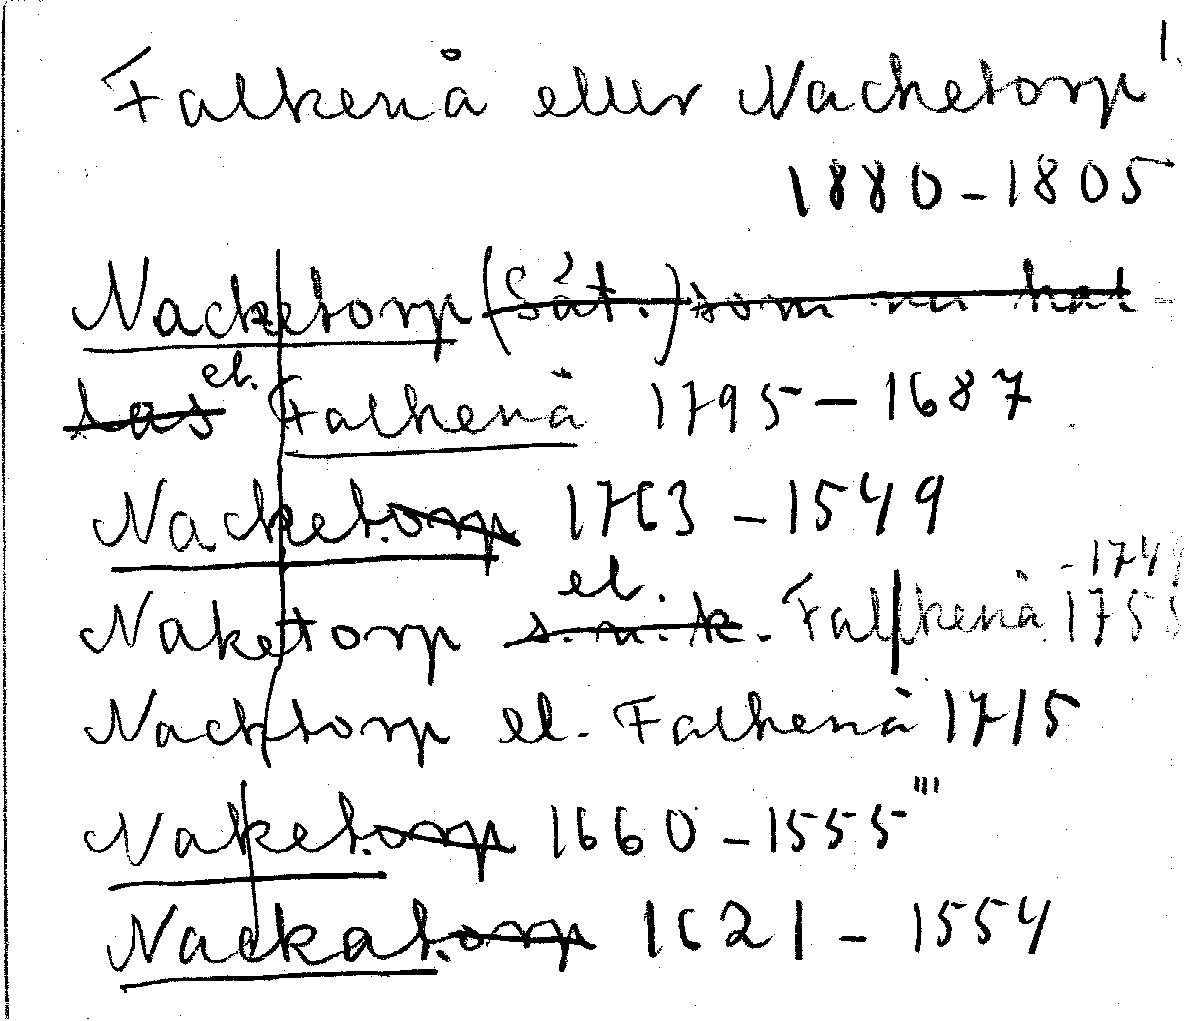 1.
Falkenå eller Nacketorp
1880-1805
Nacketorp (Sät.) som nu kal
las el. Falkenå 1795-1687
Nacketorp 1763-1549
-1741
Naketorp el. s.n.k. Falkenå 1755
Nacktorp el. Falkenå 1715
Naketorp 1660-1555'''
Nackatorp 1621-1554